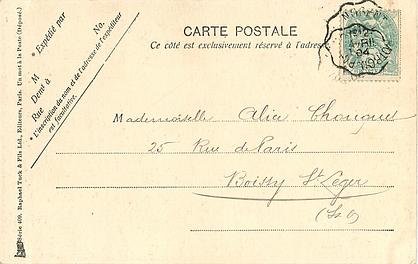 CARTE POSTALE
Ce côté est exclusivement réservé à l'adres
* Expédié par
No.
M
Demt à
Rue
* L'inscription du nom et de l'adresse de l'expéditeur
est facultative.
Série 400. Raphael Tuck & Fils Ltd., Editeurs, Paris. Un mot à la Poste (Déposé.)
AVRIL
04
Mademoiselle Alice Chouquet
25 Rue de Paris
Boissy St Leger
(S O)